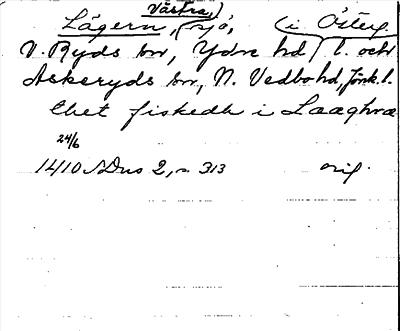 Västra)
Lägern, (sjö, (i Österg.
V. Ryds sn, Ydre hd / l. och
Askeryds sn, N. Vedbo hd, Jönk. l.
thet fiskedh i Laaghra
24/6
1410 SDns 2, s. 313 orig.